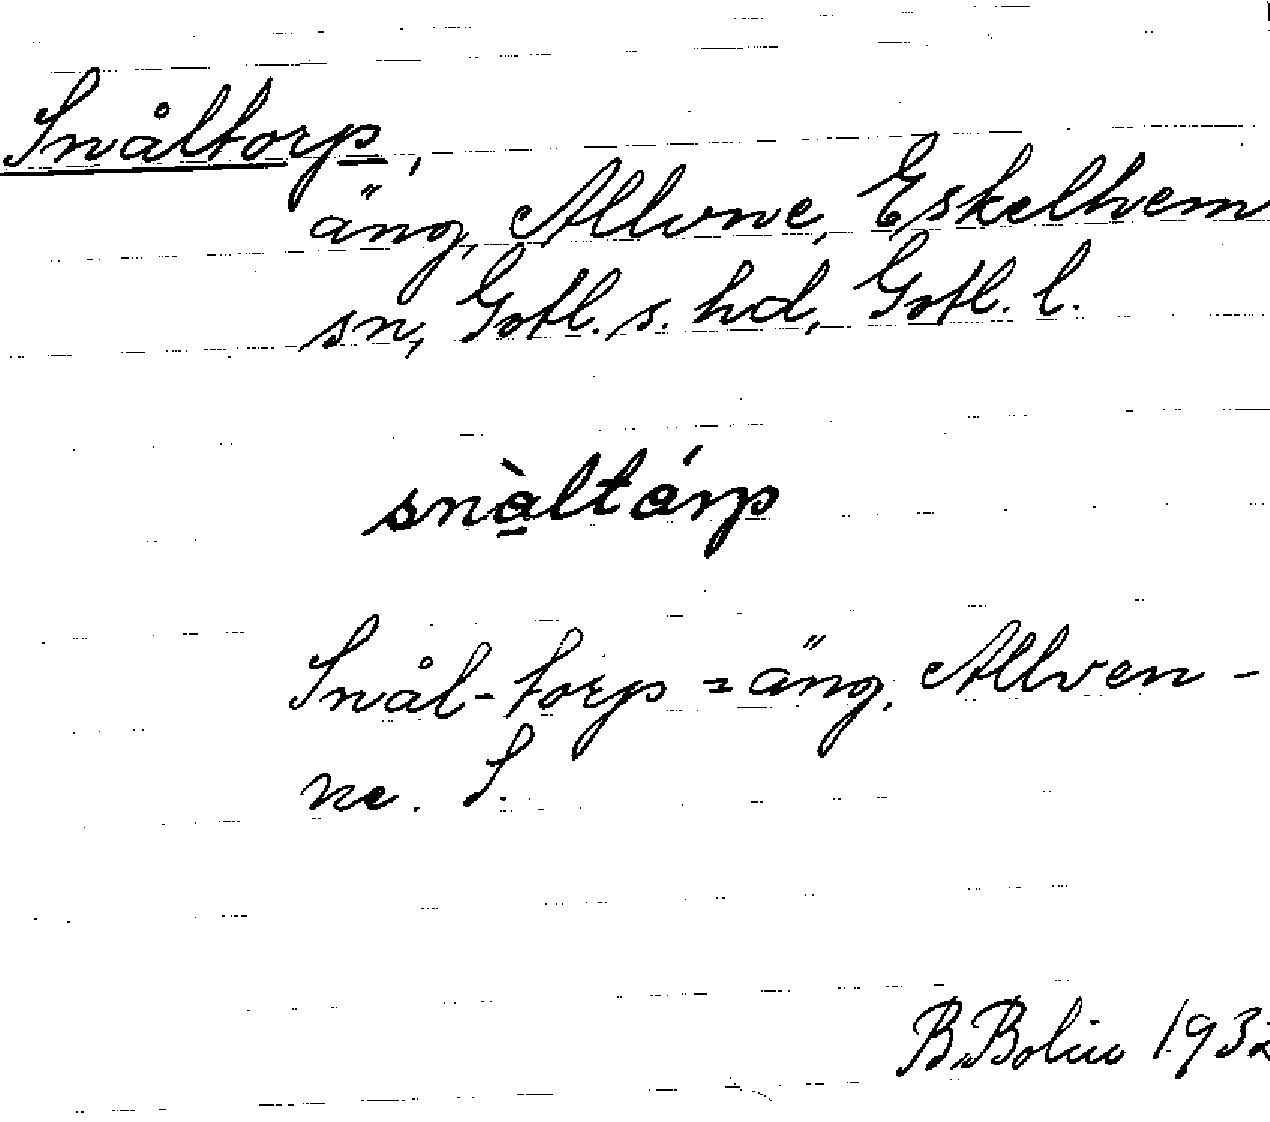 Snåltorp,
äng, Allvne, Eskelhem
sn, Gotl. s. hd, Gotl. l.
snàltárp
Snål-torp = äng. Allven-
ne. S.
B. Bolin 1932